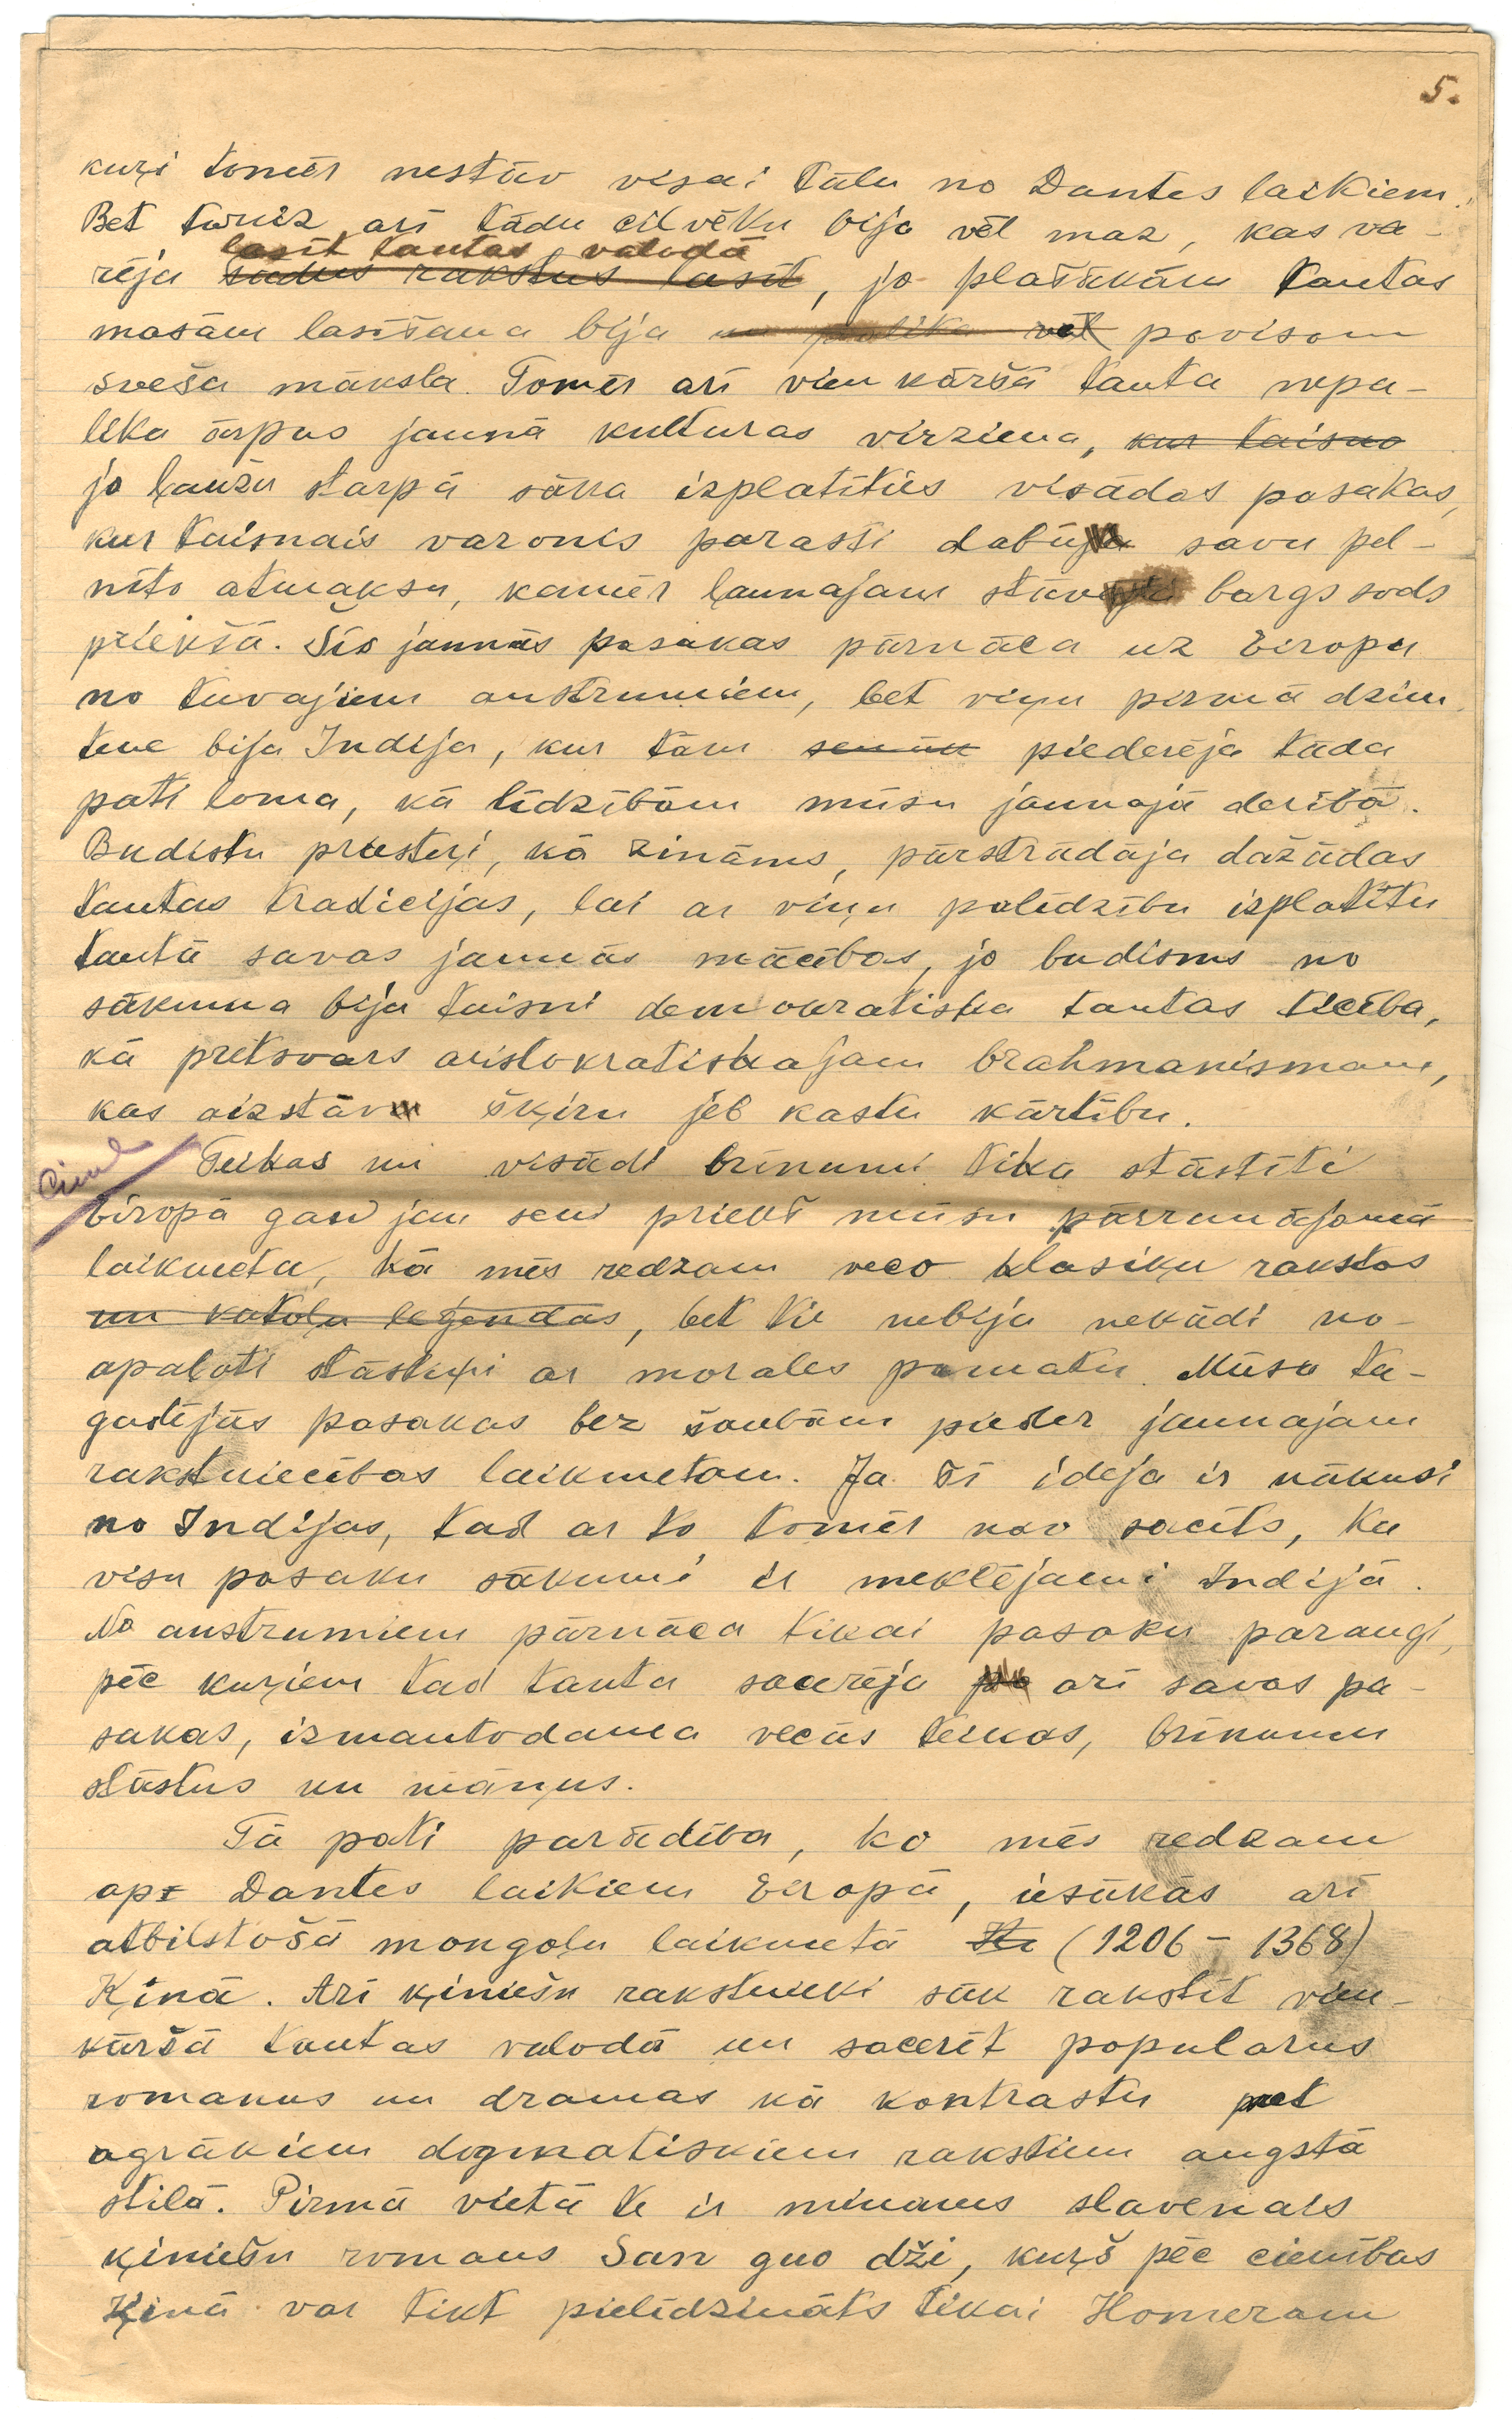 5.
kuŗi tomēr nestāv visai tālu no Dantes laikiem.
Bet toreiz arī tādu cilvēku bija vēl maz, kas va-
lasīt tautas valodā
rēja šādus rakstus lasīt, jo plašākām tautas
masām lasīšana bija un palika vēl pavisam
sveša māksla. Tomēr arī vienkāršā tauta nepa-
lika ārpus jaunā kulturas virziena, kur taisno
jo ļaužu starpā sāka izplatīties visādas pasakas,
kur taisnais varonis parasti dabūja savu pel-
nīto atmaksu, kamēr ļaunajam stāv bargs sods
priekšā. Šīs jaunās pasakas pārnāca uz Eiropu
no tuvajiem austrumiem, bet viņu pirmā dzim-
tene bija Indija, kur tām senāk piederēja tāda
pati loma, kā līdzībām mūsu jaunajā derībā.
Budistu priesteŗi, kā zināms, pārstrādāja dažādas
tautas tradicijas, lai ar viņu palīdzību izplatītu
tautā savas jaunās mācības, jo budisms no
sākuma bija taisni demokratiska tautas ticība,
kā pretsvars aristokratiskajam brahmanismam,
kas aizstāv šķiru jeb kastu kārtību.
Teikas un visādi brīnumi tika stāstīti
Eiropā gan jau sen priekš mūsu pārrunājamā
laikmeta, kā mēs redzam veco klasiķu rakstos
un katoļu leģendās, bet tie nebija nekādi no-
apaļoti stāstiņi ar morales pamatu. Mūsu ta-
gadējās pasakas bez šaubām pieder jaunajam
rakstniecības laikmetam. Ja šī ideja ir nākusi
no Indijas, tad ar to tomēr nav sacīts, ka
visu pasaku sākumi ir meklējami Indijā.
No austrumiem pārnāca tikai pasaku paraugi,
pēc kuŗiem tad tauta sacerēja arī savas pa-
sakas, izmantodama vecās teikas, brīnumu
stāstus un māņus.
Tā pati parādība, ko mēs redzam
ap Dantes laikiem Eiropā, iesākās arī
atbilstošā mongoļu laikmetā (1206 – 1368)
Ķīnā. Arī ķīniešu rakstnieki sāk rakstīt vien-
kāršā tautas valodā un sacerēt popularus
romanus un dramas kā kontrastu pret
agrākiem dogmatiskiem rakstiem augstā
stilā. Pirmā vietā te ir minams slavenais
ķīniešu romans San guo dži, kuŗš pēc cienības
Ķīnā var tikt pielīdzināts tikai Homeram